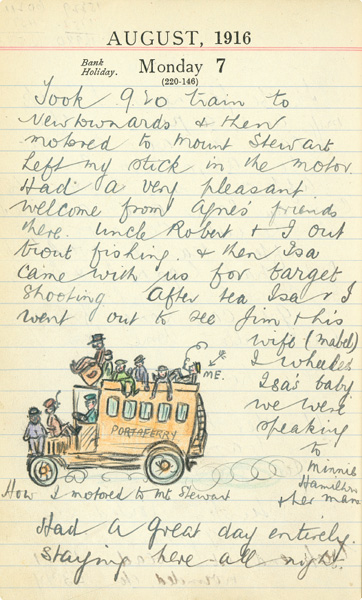 AUGUST, 1916
Bank Holiday. Monday 7
(220-146)
Took 9.20 train to
Newtownards & then
motored to Mount Stewart
Left my stick in the motor.
Had a very pleasant
welcome from Agnes' friends
there. Uncle Robert & I out
trout fishing. & then Isa
came with us for target
shooting After tea Isa & I
went out to see Jim & his
wife (Mabel)
I wheeled
Isa's baby
we were
speaking
to
Minnie
Hamilton
& her man
ME.
PORTAFERRY
How I motored to Mt Stewart
Had a great day entirely.
Staying here all night.